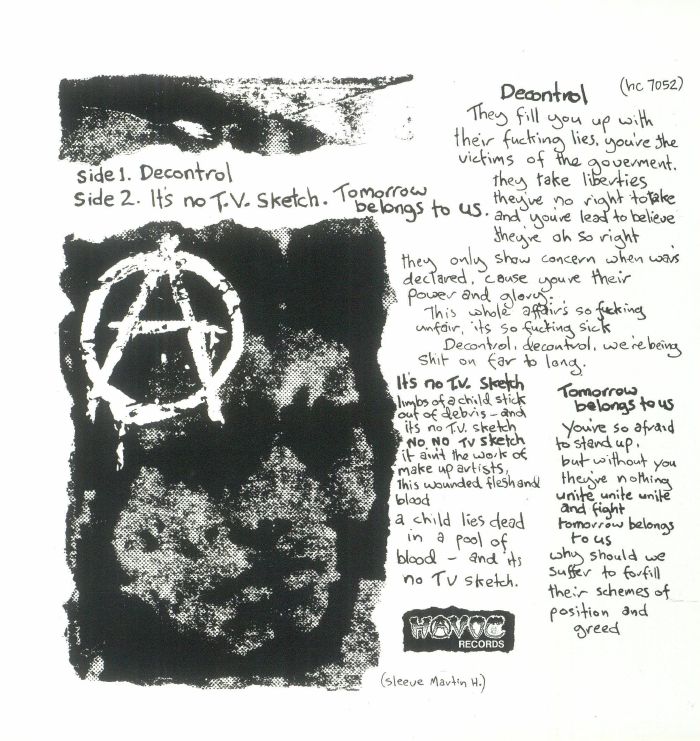 side 1. Decontrol
side 2. It's no T.V. sketch. Tomorrow
belongs to us.
Decontrol
(hc 7052)
They fill you up with
their fucking lies, you're the
victims of the goverment.
they take liberties
they've no right to take
and you've lead to believe
they're oh so right
they only show concern when wars
declared, cause youre their
power and glory.
This whole affairs so fucking
unfair, its so fucking sick
Decontrol, decontrol, we're being
shit on far to long.
It's no T.V. sketch
limbs of a child stick
out of debris - and
its no T.V. sketch
NO, NO TV sketch
it ain't the work of
make up artists,
this wounded flesh and
blood
a child lies dead
in a pool of
blood - and its
no TV sketch.
Tomorrow
belongs to us
You're so afraid
to stand up,
but without you
they've nothing
unite unite unite
and fight
tomorrow belongs
to us
why should we
suffer to forfill
their schemes of
position and
greed
HAVOC
RECORDS
(sleeve Martin H.)